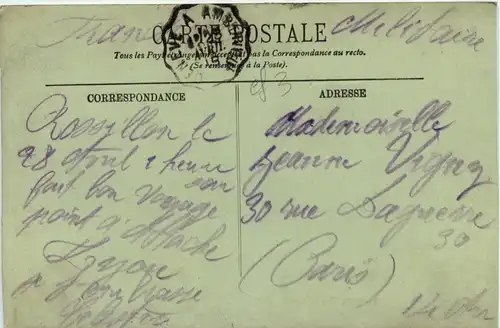 Franc Militaire
CARTE POSTALE
Tous les Pays étrangers n'acceptent pas la Correspondance au recto.
(Se renseigner à la Poste).
A AMBÉRIEU
CORRESPONDANCE
Rossillon le
28 Avril 1 heure
fait bon voyage
point d'attache
Lyon
Je t'embrasse
ADRESSE
Mademoiselle
Jeanne
30 rue Daguerre
30
(Paris)
14e Arr